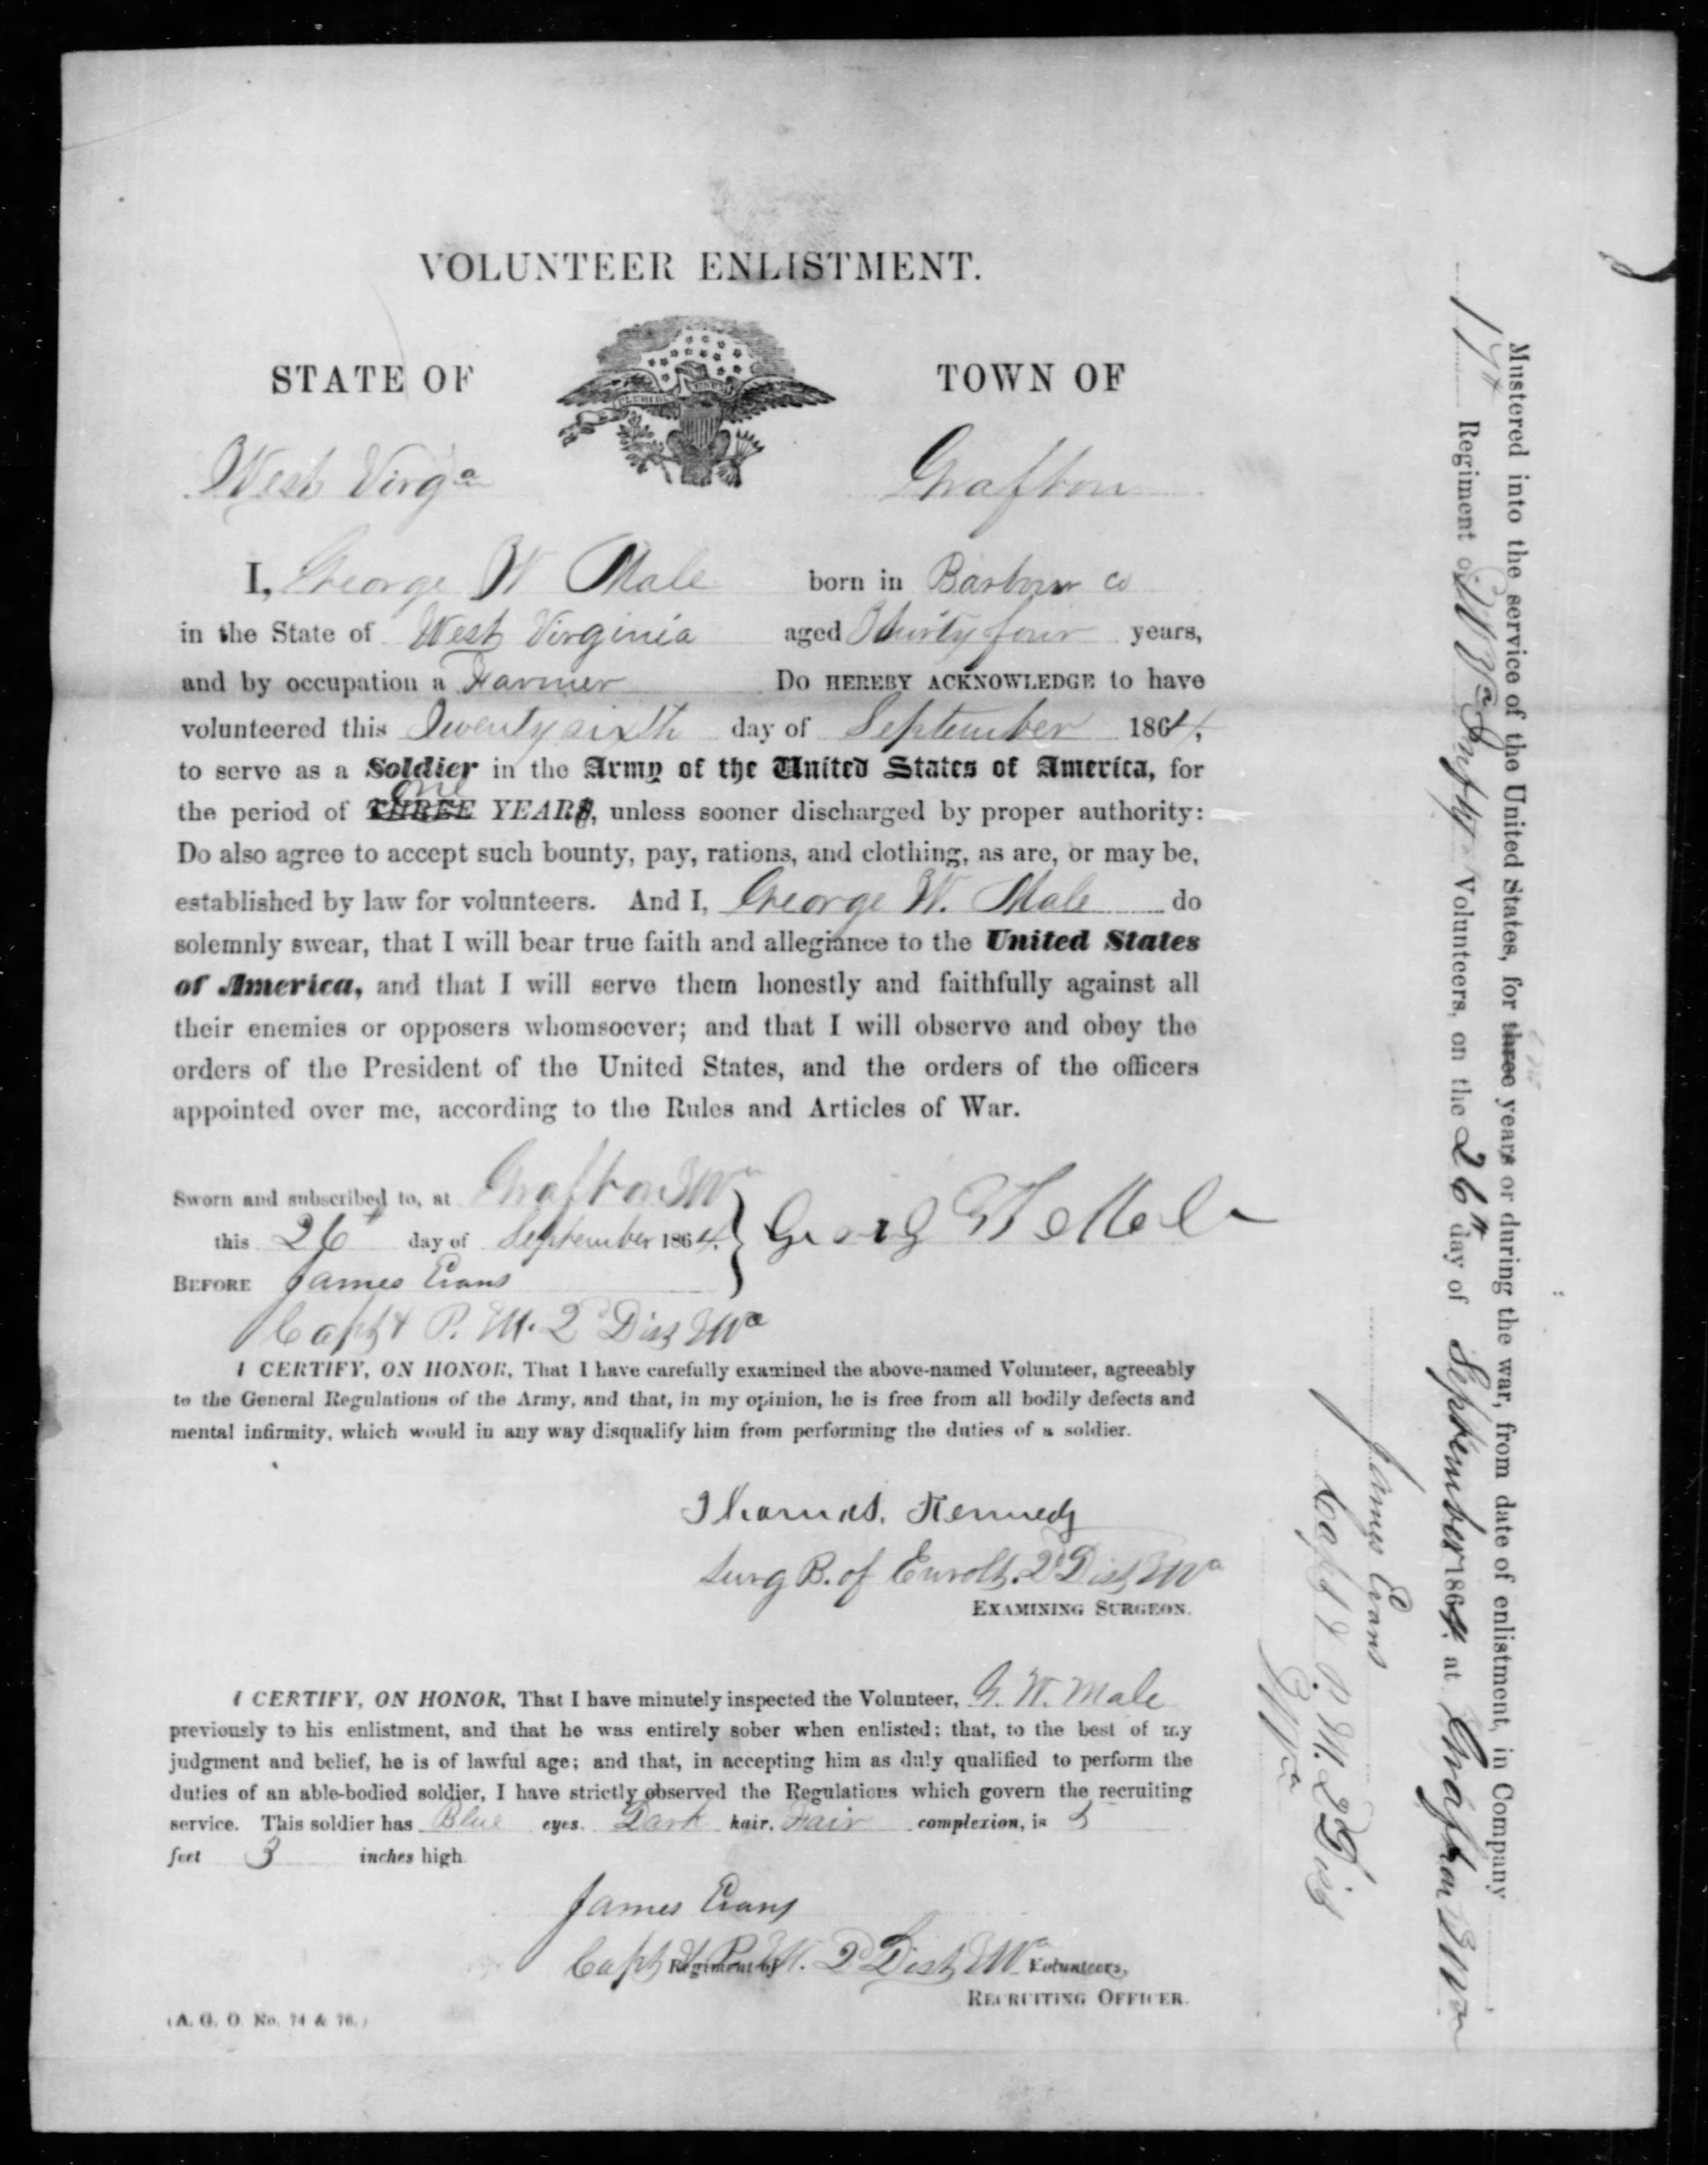 VOLUNTEER ENLISTMENT.
STATE OF
TOWN OF
West Virga
Grafton
I, George W Male born in Barbour co
in the State of West Virginia aged Thirty four years,
and by occupation a Farmer Do HEREBY ACKNOWLEDGE to have
volunteered this Twenty sixth day of September 1864,
to serve as a Soldier in the Army of the United States of America, for
one
the period of THREE YEARS, unless sooner discharged by proper authority:
Do also agree to accept such bounty, pay, rations, and clothing, as are, or may be,
established by law for volunteers. And I, George W. Male do
solemnly swear, that I will bear true faith and allegiance to the United States
of America, and that I will serve them honestly and faithfully against all
their enemies or opposers whomsoever; and that I will observe and obey the
orders of the President of the United States, and the orders of the officers
appointed over me, according to the Rules and Articles of War.
Sworn and subscribed to, at Grafton W Va
this 26th day of September 1864.
BEFORE James Evans
Capt & P. M. 2d Dist W Va
I CERTIFY, ON HONOR, That I have carefully examined the above-named Volunteer, agreeably
to the General Regulations of the Army, and that, in my opinion, he is free from all bodily defects and
mental infirmity, which would in any way disqualify him from performing the duties of a soldier.
Thomas. Kennedy
Surg B. of Enrolt. 2d Dist W Va
EXAMINING SURGEON.
I CERTIFY, ON HONOR, That I have minutely inspected the Volunteer, G. W. Male
previously to his enlistment, and that he was entirely sober when enlisted; that, to the best of my
judgment and belief, he is of lawful age; and that, in accepting him as duly qualified to perform the
duties of an able-bodied soldier, I have strictly observed the Regulations which govern the recruiting
service. This soldier has Blue eyes, Dark hair, Fair complexion, is 5
feet 3 inches high.
James Evans
Capt & P. M. 2d Dist W Va
Regiment of Volunteers,
RECRUITING OFFICER.
(A. G. O. No. 74 & 76.)
one
Mustered into the service of the United States, for three years or during the war, from date of enlistment, in Company
17th Regiment of W Va Infty Volunteers, on the 26th day of September 1864, at Grafton W Va
James Evans
Capt & P. M. 2d Dist
W Va